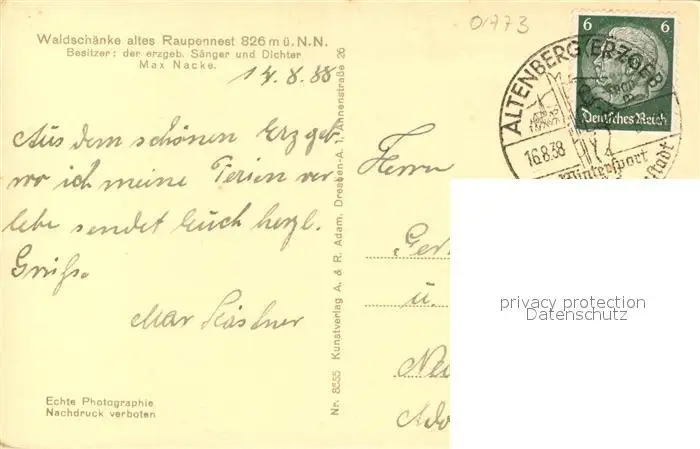 01773
Waldschänke altes Raupennest 826 m ü. N.N.
Besitzer: der erzgeb. Sänger und Dichter
Max Nacke.
14.8.38
Aus dem schönen Erzgeb
wo ich meine Ferien ver
lebe sendet Euch herzl.
Grüße.
Max Kästner
Echte Photographie
Nachdruck verboten
Nr. 8555 Kunstverlag A. & R. Adam, Dresden-A. 1, Annenstraße 26
6 6
Deutsches Reich
ALTENBERG (ERZGEB
16.8.38
Wintersport
stadt
Herrn
u.
privacy protection
Datenschutz